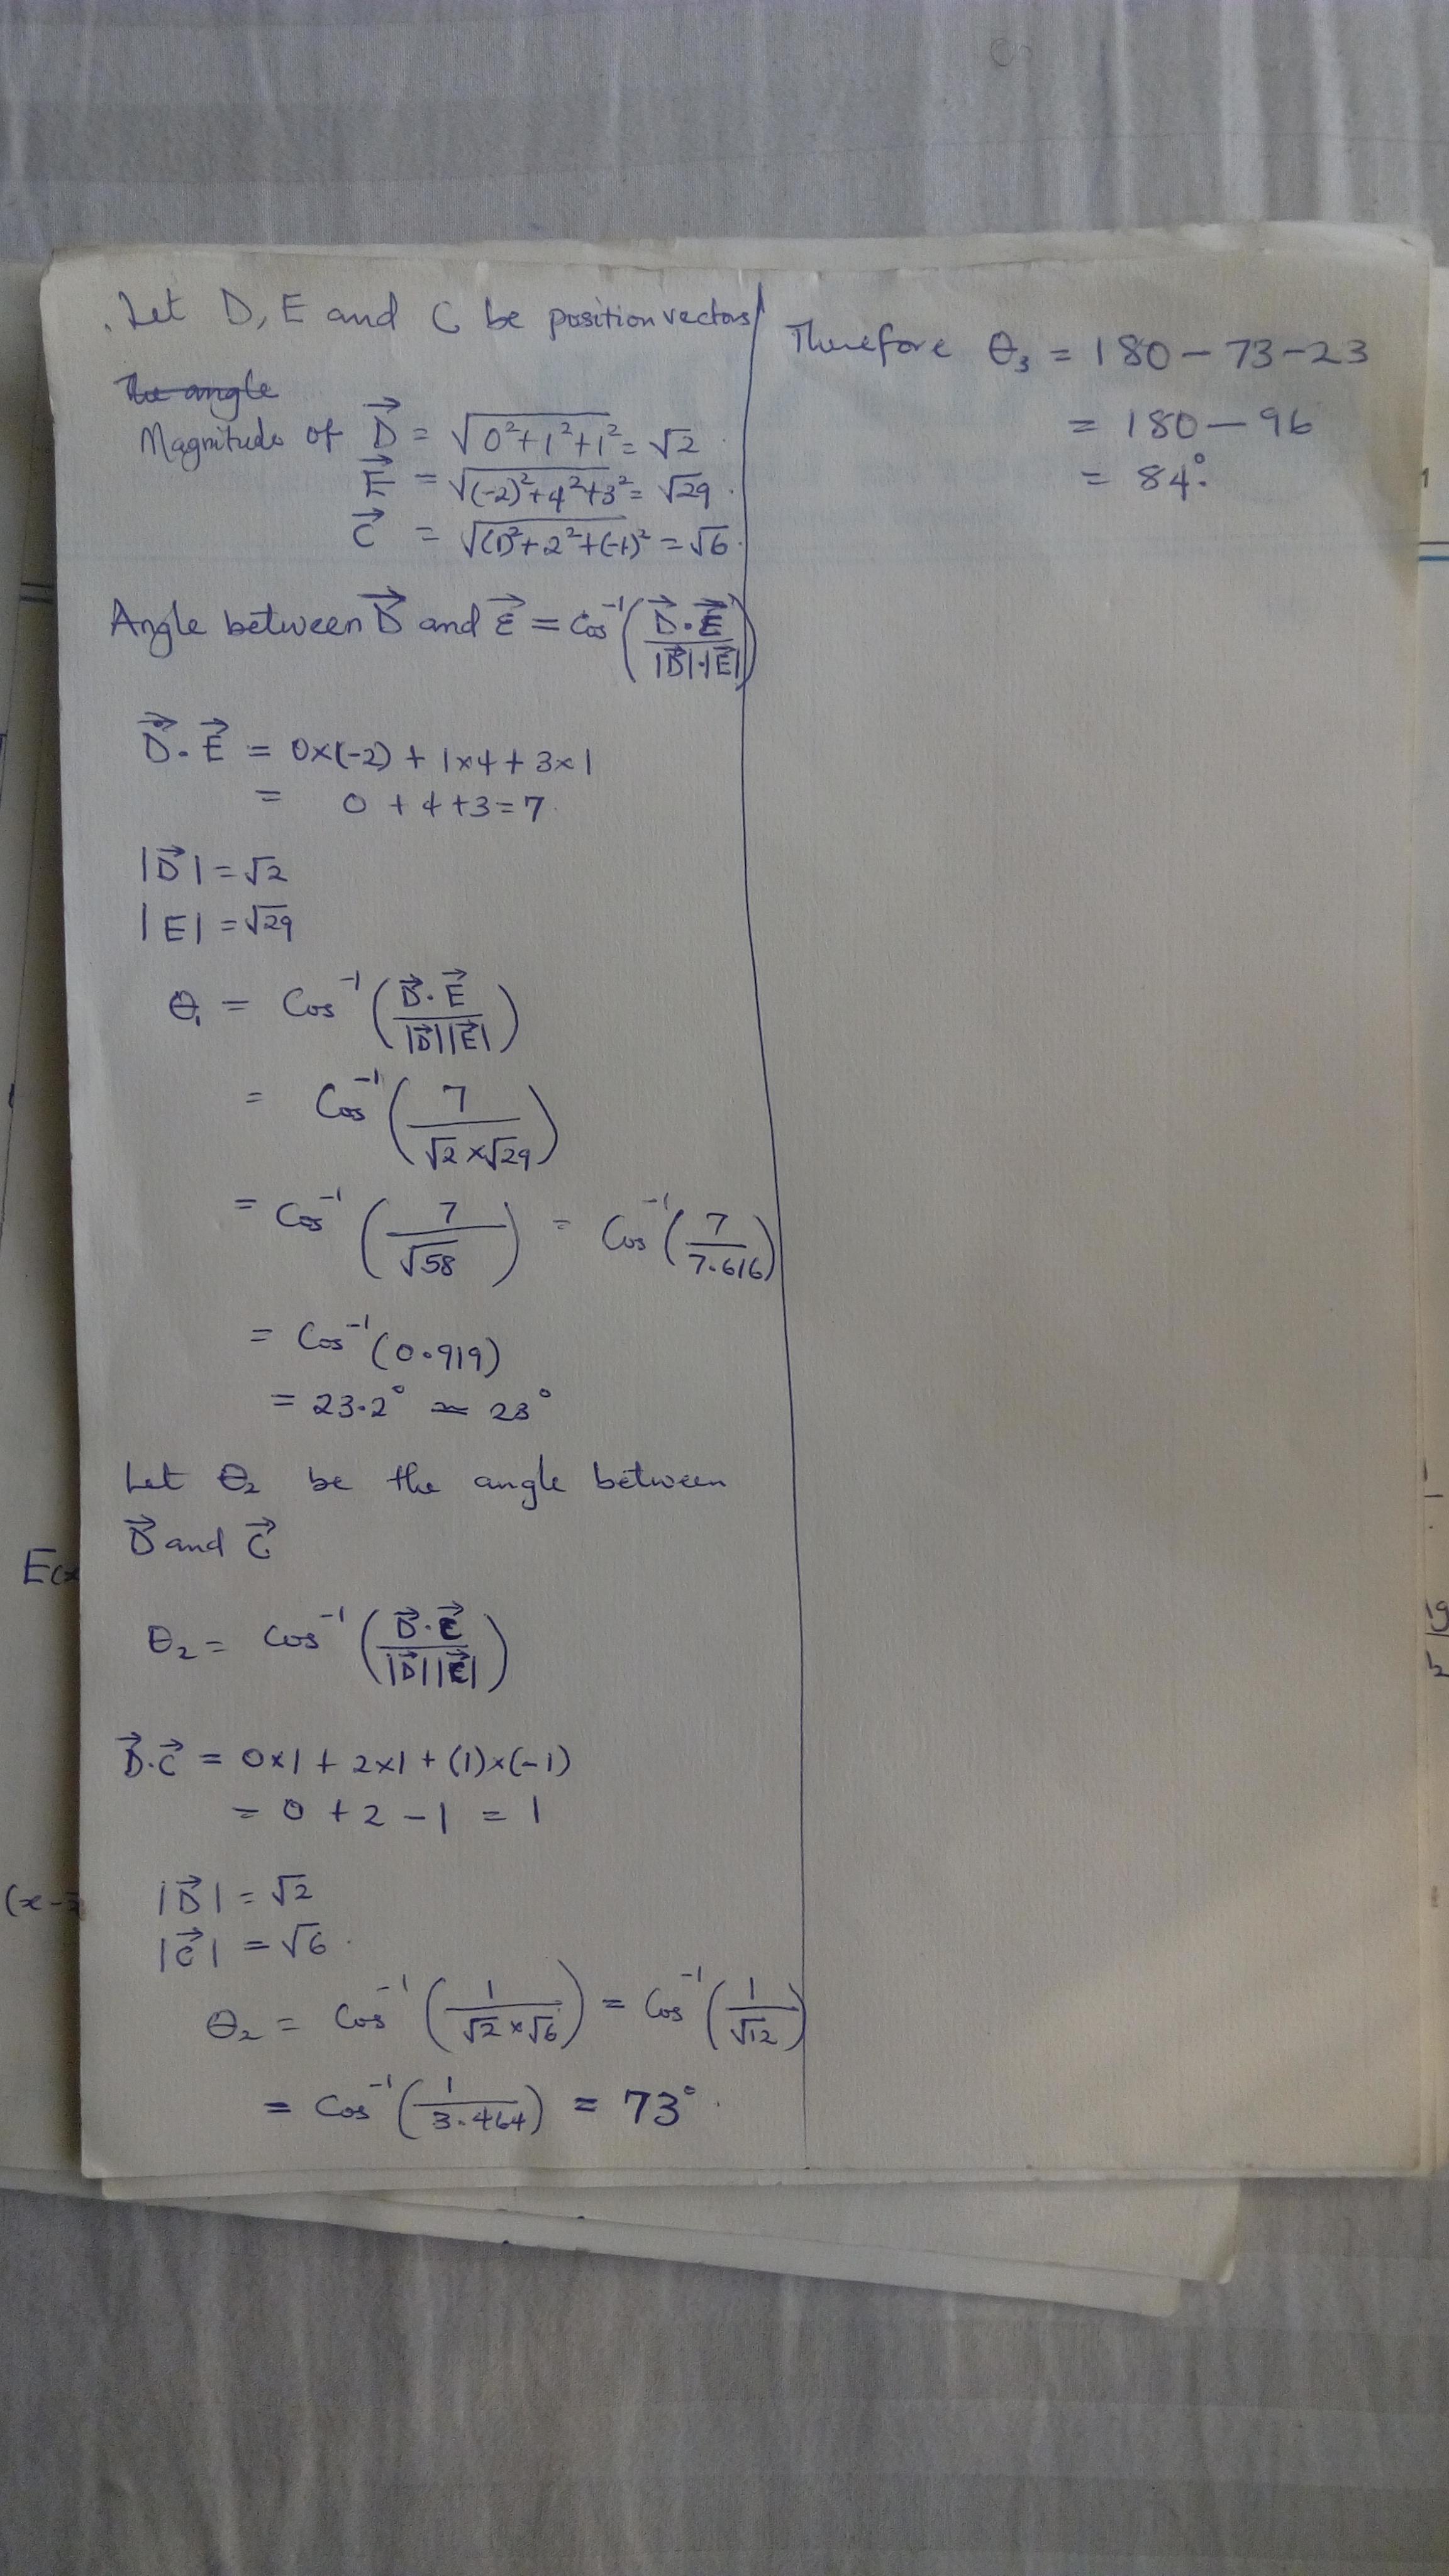 Let D, E and C be position vectors
The angle
Magnitude of D⃗ = √(0²+1²+1²) = √2
E⃗ = √((-2)²+4²+3²) = √29.
C⃗ = √((1)²+2²+(-1)²) = √6.
Angle between D⃗ and E⃗ = Cos⁻¹(D⃗·E⃗ / |D⃗|·|E⃗|)
D⃗·E⃗ = 0×(-2) + 1×4 + 3×1
= 0 + 4 + 3 = 7.
|D⃗| = √2
|E| = √29
θ₁ = Cos⁻¹(D⃗·E⃗ / |D⃗||E⃗|)
= Cos⁻¹(7 / √2×√29)
= Cos⁻¹(7 / √58) = Cos⁻¹(7 / 7.616)
= Cos⁻¹(0.919)
= 23.2° ≃ 23°
Let θ₂ be the angle between
D⃗ and C⃗
θ₂ = Cos⁻¹(D⃗·C⃗ / |D⃗||C⃗|)
D⃗·C⃗ = 0×1 + 2×1 + (1)×(-1)
= 0 + 2 - 1 = 1
|D⃗| = √2
|C⃗| = √6.
θ₂ = Cos⁻¹(1 / √2×√6) = Cos⁻¹(1 / √12)
= Cos⁻¹(1 / 3.464) = 73°.
Therefore θ₃ = 180 - 73 - 23
= 180 - 96
= 84°.